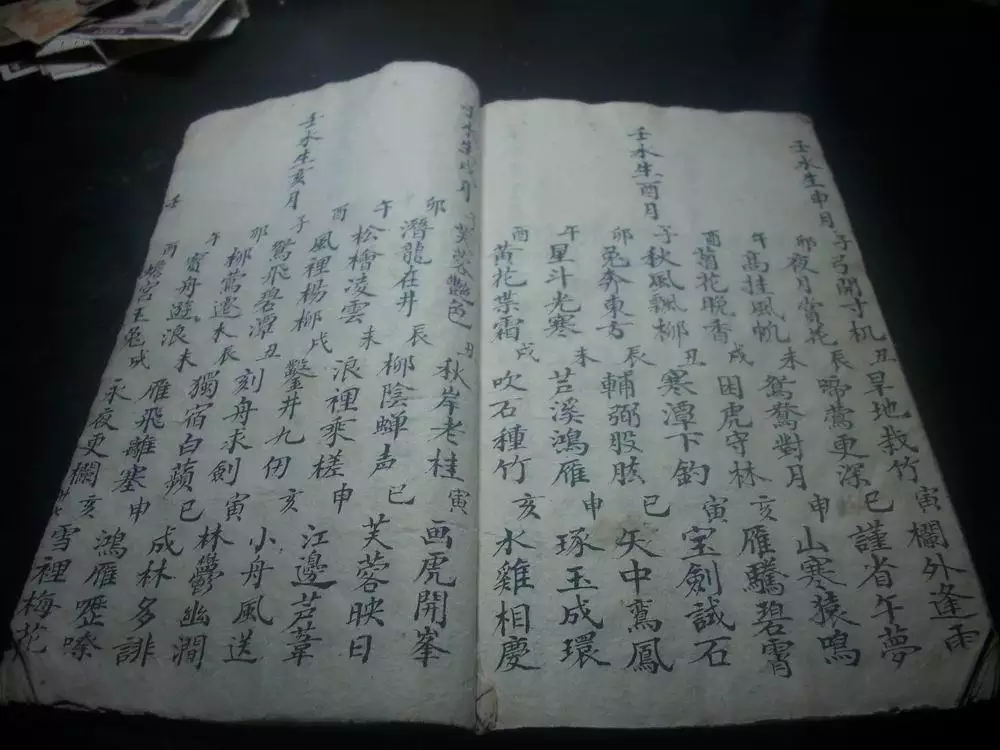 壬水生申月
子弓開寸机 丑旱地栽竹 寅欄外逢雨
卯夜月賞花 辰啼鶯更深 巳謹省午夢
午高挂風帆 未鴛鴦對月 申山寒猿鳴
酉菊花晚香 戌困虎守林 亥雁騰碧霄
壬水生酉月
子秋風飄柳 丑寒潭下釣 寅宝劍試石
卯兔奔東方 辰輔弼股肱 巳矢中鸞鳳
午星斗光寒 未芦溪鴻雁 申琢玉成環
酉黄花葉霜 戌吹石種竹 亥水雞相慶
壬水生戌月
芙蓉艷色 丑秋岸老桂 寅画虎開峯
卯潛龍在井 辰柳陰蝉声 巳芙蓉映日
午松檜凌雲 未浪裡乘槎 申江邊芦葦
酉風裡楊柳 戌鑿井九仞 亥小舟風送
壬水生亥月
子鴛飛碧潭 丑刻舟求劍 寅林鬱幽澗
卯柳鶯遷木 辰獨宿白蘋 巳成林多誹
午寶舟遊浪 未雁飛離塞 申鴻雁嚦嗦
酉蟾宮玉兔 戌永夜更欄 亥雪裡梅花
壬